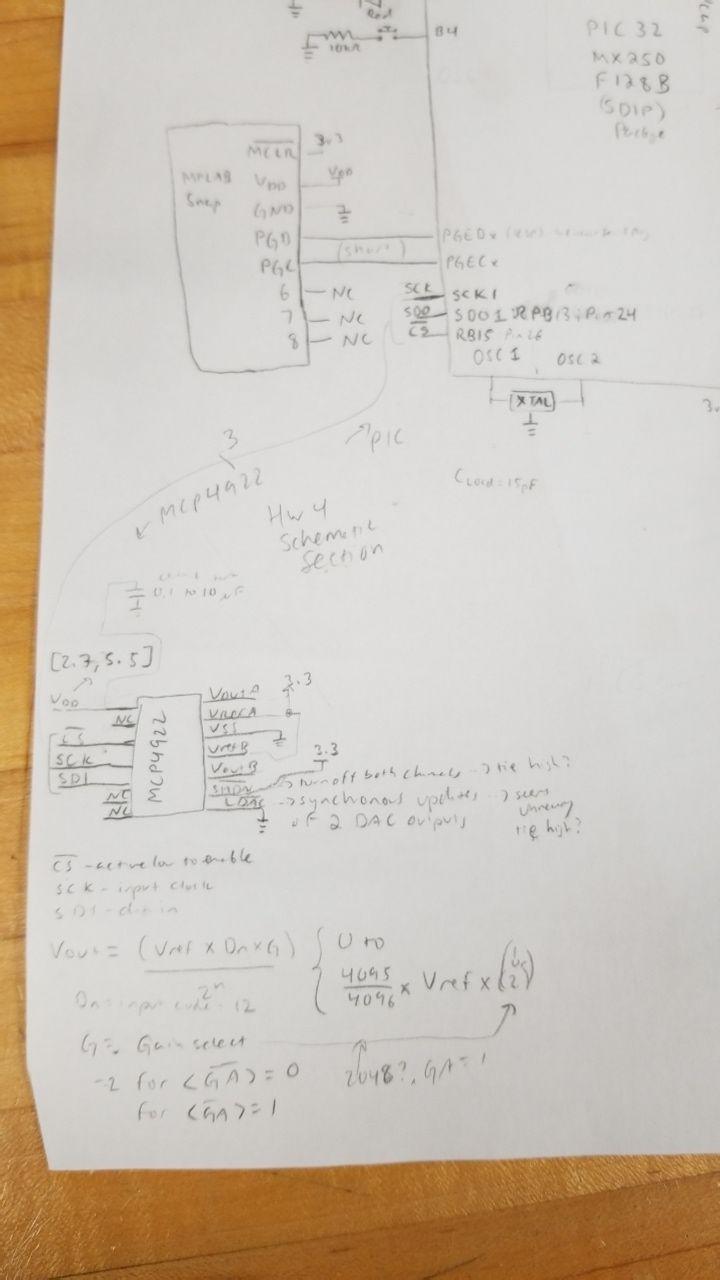 Red
10kΩ
B4
PIC 32
MX250
F128B
(SDIP)
Package
MPLAB
Snap
MCLR
3v3
VDD
VDD
GND
PGD
PGC
(short)
PGEDx
PGECx
6 NC
7 NC
8 NC
SCK SCK1
SDO SDO1 RPB13, Pin 24
CS RB15 Pin 26
OSC1 OSC2
XTAL
3
PIC
MCP4922
CLoad = 15pF
HW 4
Schematic
Section
0.1 to 10 uF
[2.7, 5.5]
VDD
NC
CS
SCK
SDI
NC
NC
MCP4922
VoutA
VrefA
VSS
VrefB
VoutB
SHDN
LDAC
3.3
3.3
-> turn off both channels -> tie high?
-> synchonous updates -> seems
of 2 DAC outputs
tie high?
CS - active low to enable
SCK - input clock
SDI - data in
Vout = (Vref x Dn x G)
2^n
{ 0 to
4095
4096 x Vref x (1 or 2)
Dn = input code 12
G = Gain select
-2 for <GA> = 0
2048?, GA = 1
for <GA> = 1